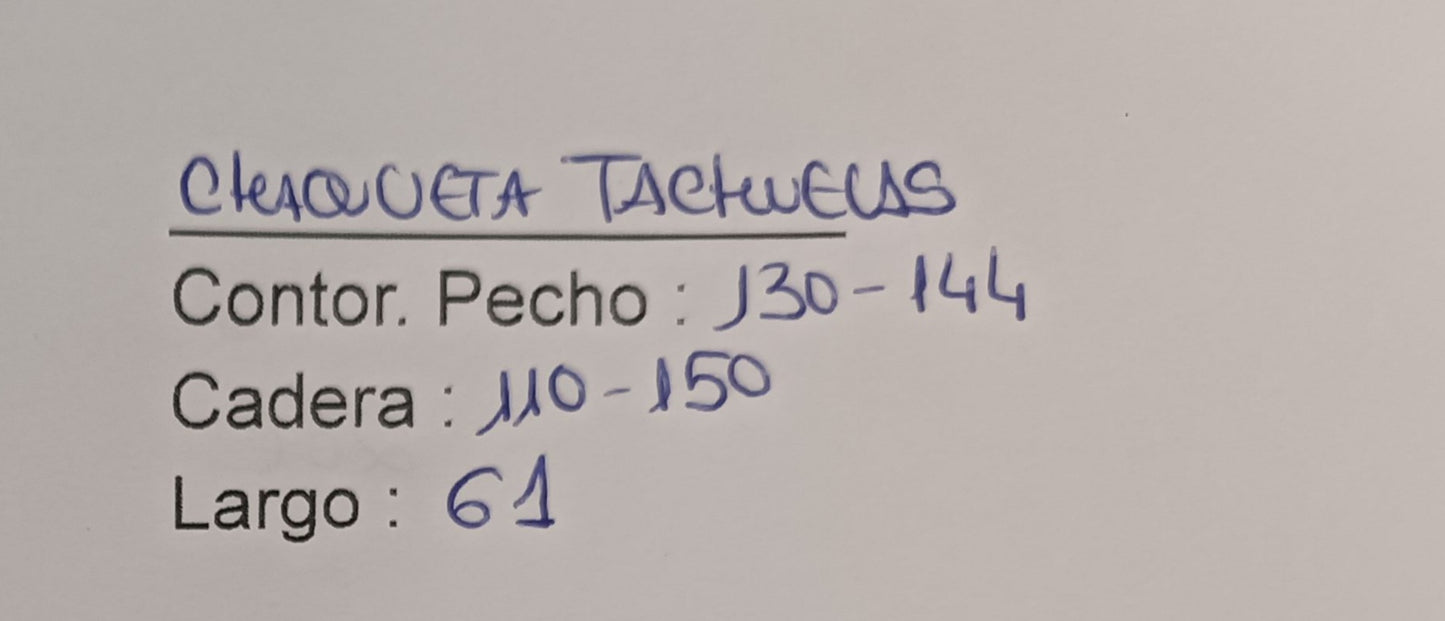 CHAQUETA TACHUELAS
Contor. Pecho : 130-144
Cadera : 110-150
Largo : 61